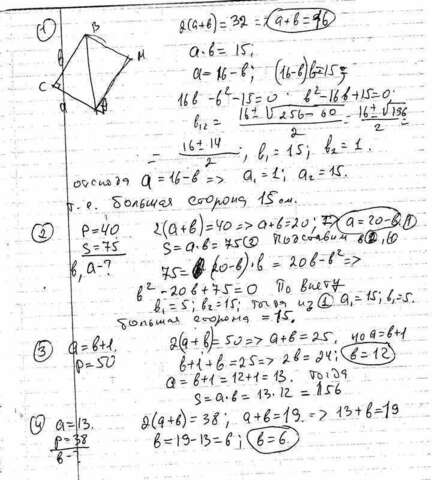 ① 2(a+b) = 32 => a+b = 16
B
M
C
b
a
a·b = 15;
a = 16-b; (16-b)b=15;
16b - b² - 15 = 0 b² - 16b + 15 = 0
b₁₂ = 16 ± √256 - 60 / 2 = 16 ± √196 / 2 =
= 16 ± 14 / 2 , b₁ = 15; b₂ = 1.
отсюда a = 16-b => a₁ = 1; a₂ = 15.
т.е. большая сторона 15 см.
② P=40 2(a+b) = 40 => a+b = 20; => a = 20-b ①
S=75 S = a·b = 75 ② Подставим в ②
b, a - ? 75 = (20-b)·b = 20b - b² =>
b² - 20b + 75 = 0 По Виету
b₁ = 5; b₂ = 15; тогда из ① a₁ = 15; b₁ = 5.
большая сторона = 15.
③ a = b+1. 2(a+b) = 50 => a+b = 25, но a = b+1
P = 50 b+1+b = 25 => 2b = 24; b = 12
a = b+1 = 12+1 = 13. тогда
S = a·b = 13·12 = 156
④ a = 13. 2(a+b) = 38; a+b = 19. => 13+b = 19
P = 38 b = 19-13 = 6; b = 6.
b - ?